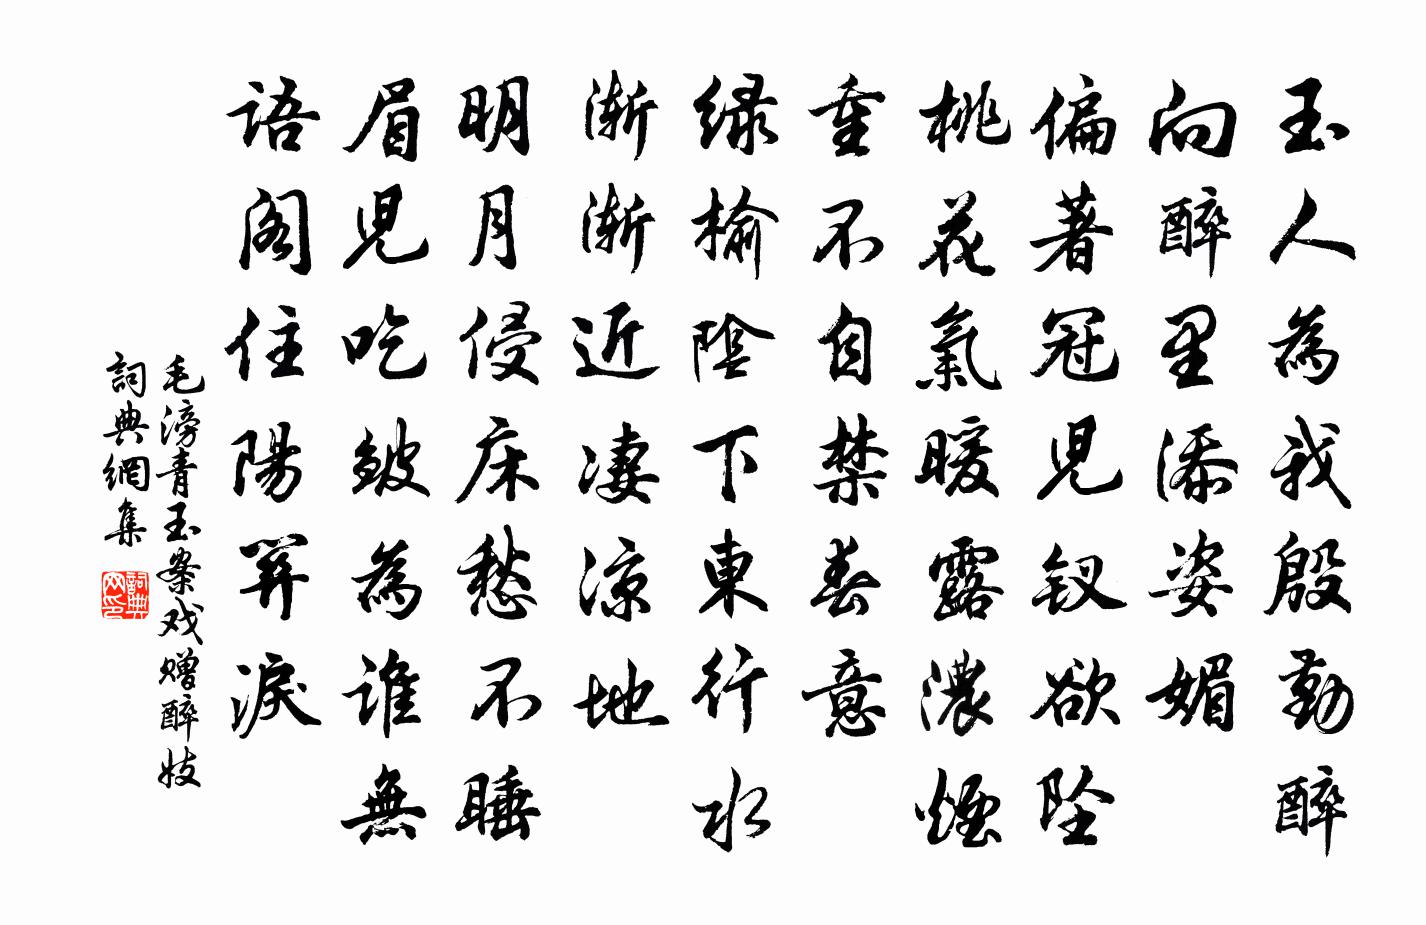 玉人為我殷勤醉
向醉里添姿媚
偏著冠兒釵欲墜
桃花氣暖露濃煙
重不自禁春意
绿榆陰下東行水
漸漸近凄涼地
明月侵床愁不睡
眉兒吃皴為誰無
語閣住陽關淚
毛滂青玉案戏赠醉妓
詞典網集
詞典网印